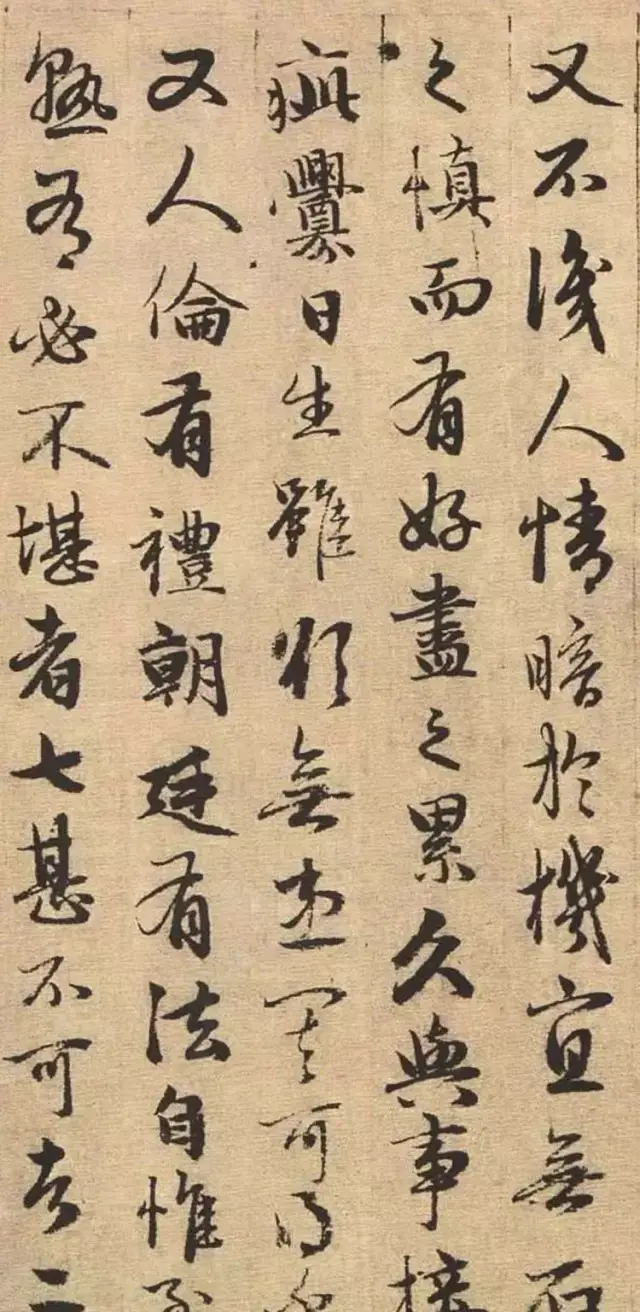 又不識人情暗於機宜無石
之慎而有好盡之累久與事接
疵釁日生雖欲無患其可得乎
又人倫有禮朝廷有法自惟至
熟有必不堪者七甚不可者二